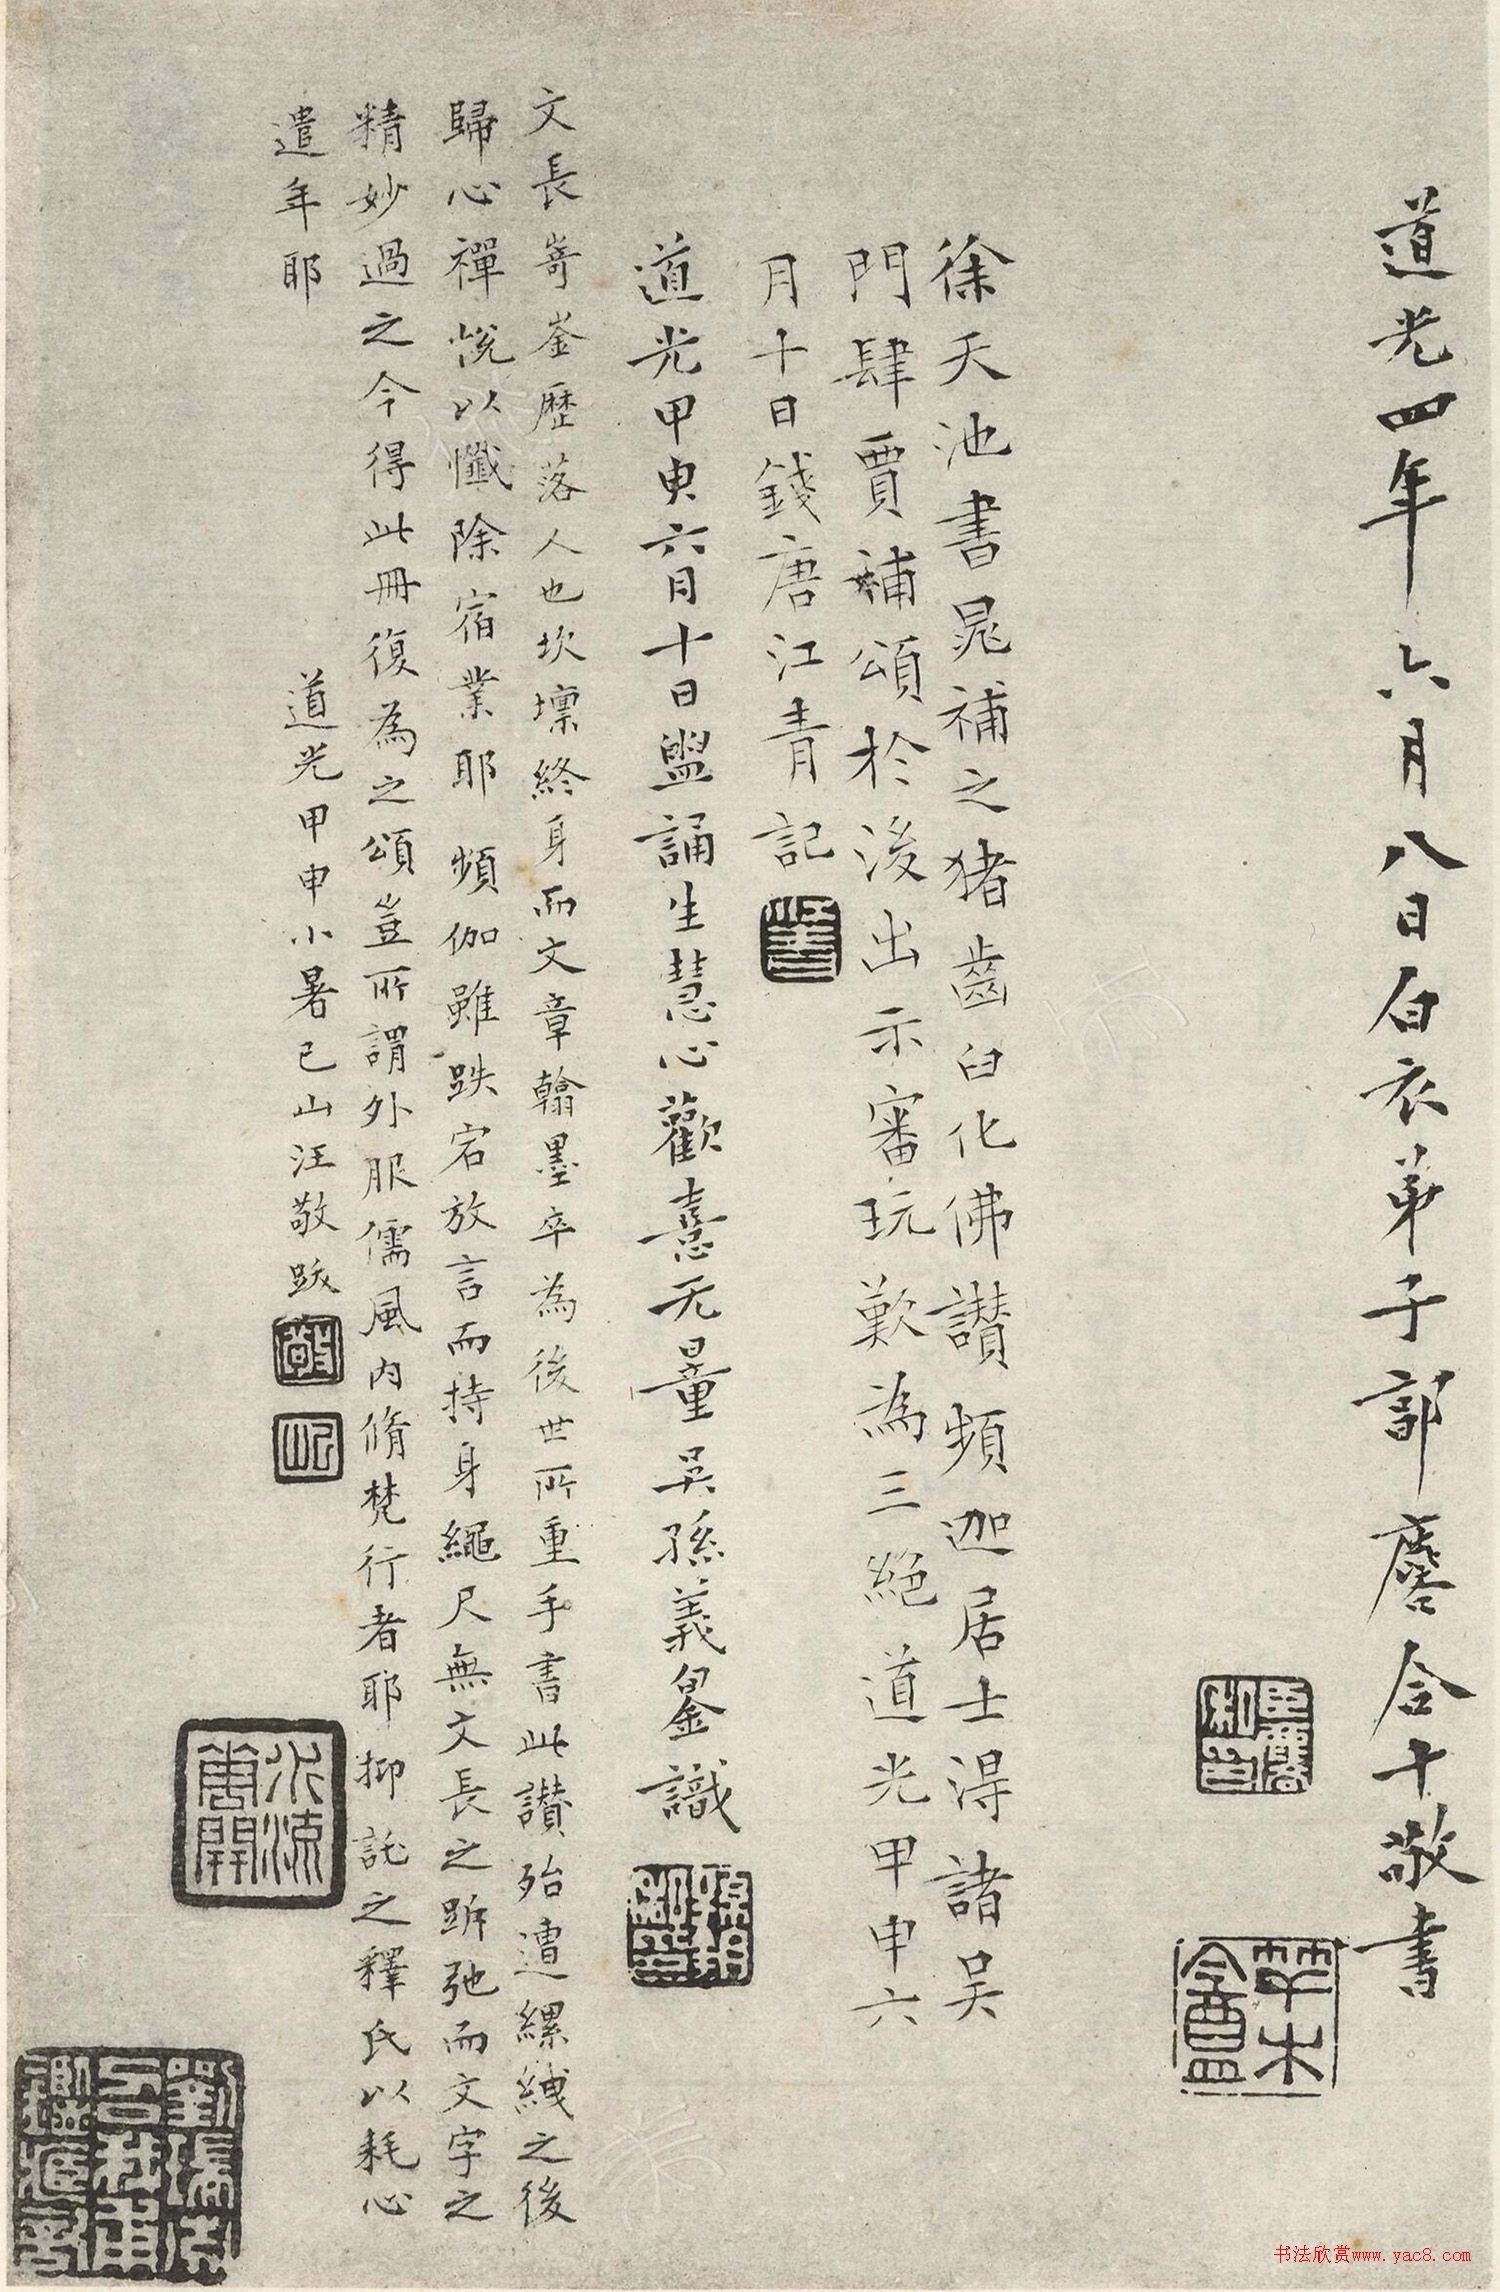 道光四年六月八日白衣弟子郭麐合十敬書
徐天池書晁補之猪齒臼化佛讚頻迦居士得諸吴
門肆賈補頌於後出示審玩歎為三絕道光甲申六
月十日錢唐江青記
道光甲申六月十日盥誦生慧心歡憙无量吴孫義鋆識
文長嵜崟歷落人也坎壈終身而文章翰墨卒為後世所重手書此讚殆遭縲絏之後
歸心禪悅以懺除宿業耶頻伽雖跌宕放言而持身繩尺無文長之跅弛而文字之
精妙過之今得此冊復為之頌豈所謂外服儒風内脩梵行者耶抑託之釋氏以耗心
遣年耶
道光甲申小暑已山汪敬跋
水流
花開
书法欣赏www.yac8.com